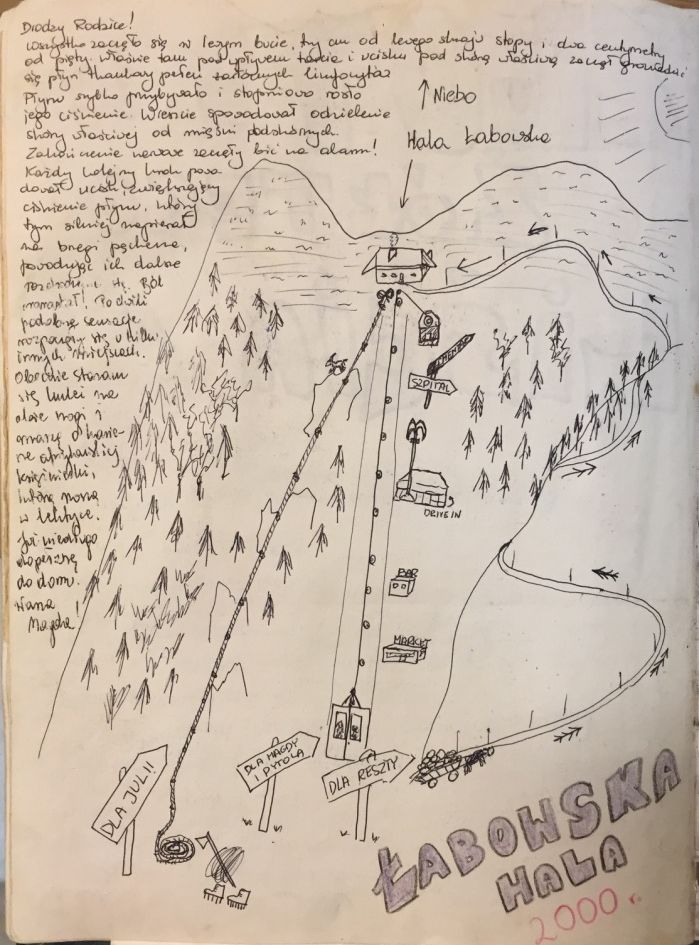 Drodzy Rodzice!
Wszystko zaczęło się w lewym bucie, trzy cm od lewego skraju stopy i dwa centymetry
od pięty. Właśnie tam pod wpływem tarcia i ucisku pod skórą właściwą zaczął gromadzić
się płyn tkankowy pełen żarłocznych limfocytów
Płynu szybko przybywało i stopniowo rosło
jego ciśnienie. Wreszcie spowodował oddzielenie
skóry właściwej od mięśni podskórnych.
Zakończenie nerwowe zaczęły bić na alarm!
Każdy kolejny krok powo-
dował ucisk, zwiększający
ciśnienie płynu, który
tym silniej napierał
na brzegi pęcherza,
powodując ich dalsze
się. Ból
narastał! Po chwili
podobne sensacje
rozpoczęły się w kilku
innych miejscach.
Obecnie staram
się kuleć na
obie nogi i
marzę o karie-
rze afrykańskiej
księżniczki,
którą noszą
w lektyce.
Już niedługo
dopełznę
do domu.
Wasza
Magda!
↑ Niebo
Hala Łabowska
SZPITAL
DRIVE IN
BAR
MARKET
DLA JULII
DLA MAGDY
I PYTOLA
DLA RESZTY
ŁABOWSKA
HALA
2000 r.